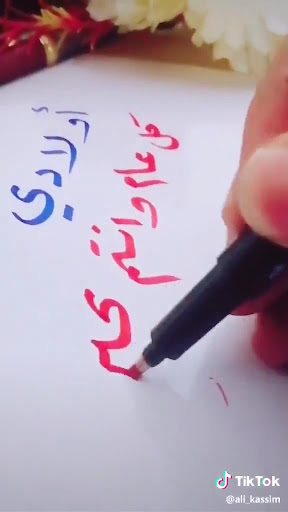 أولادي
كل عام وانتم
TikTok
@ali_kassim